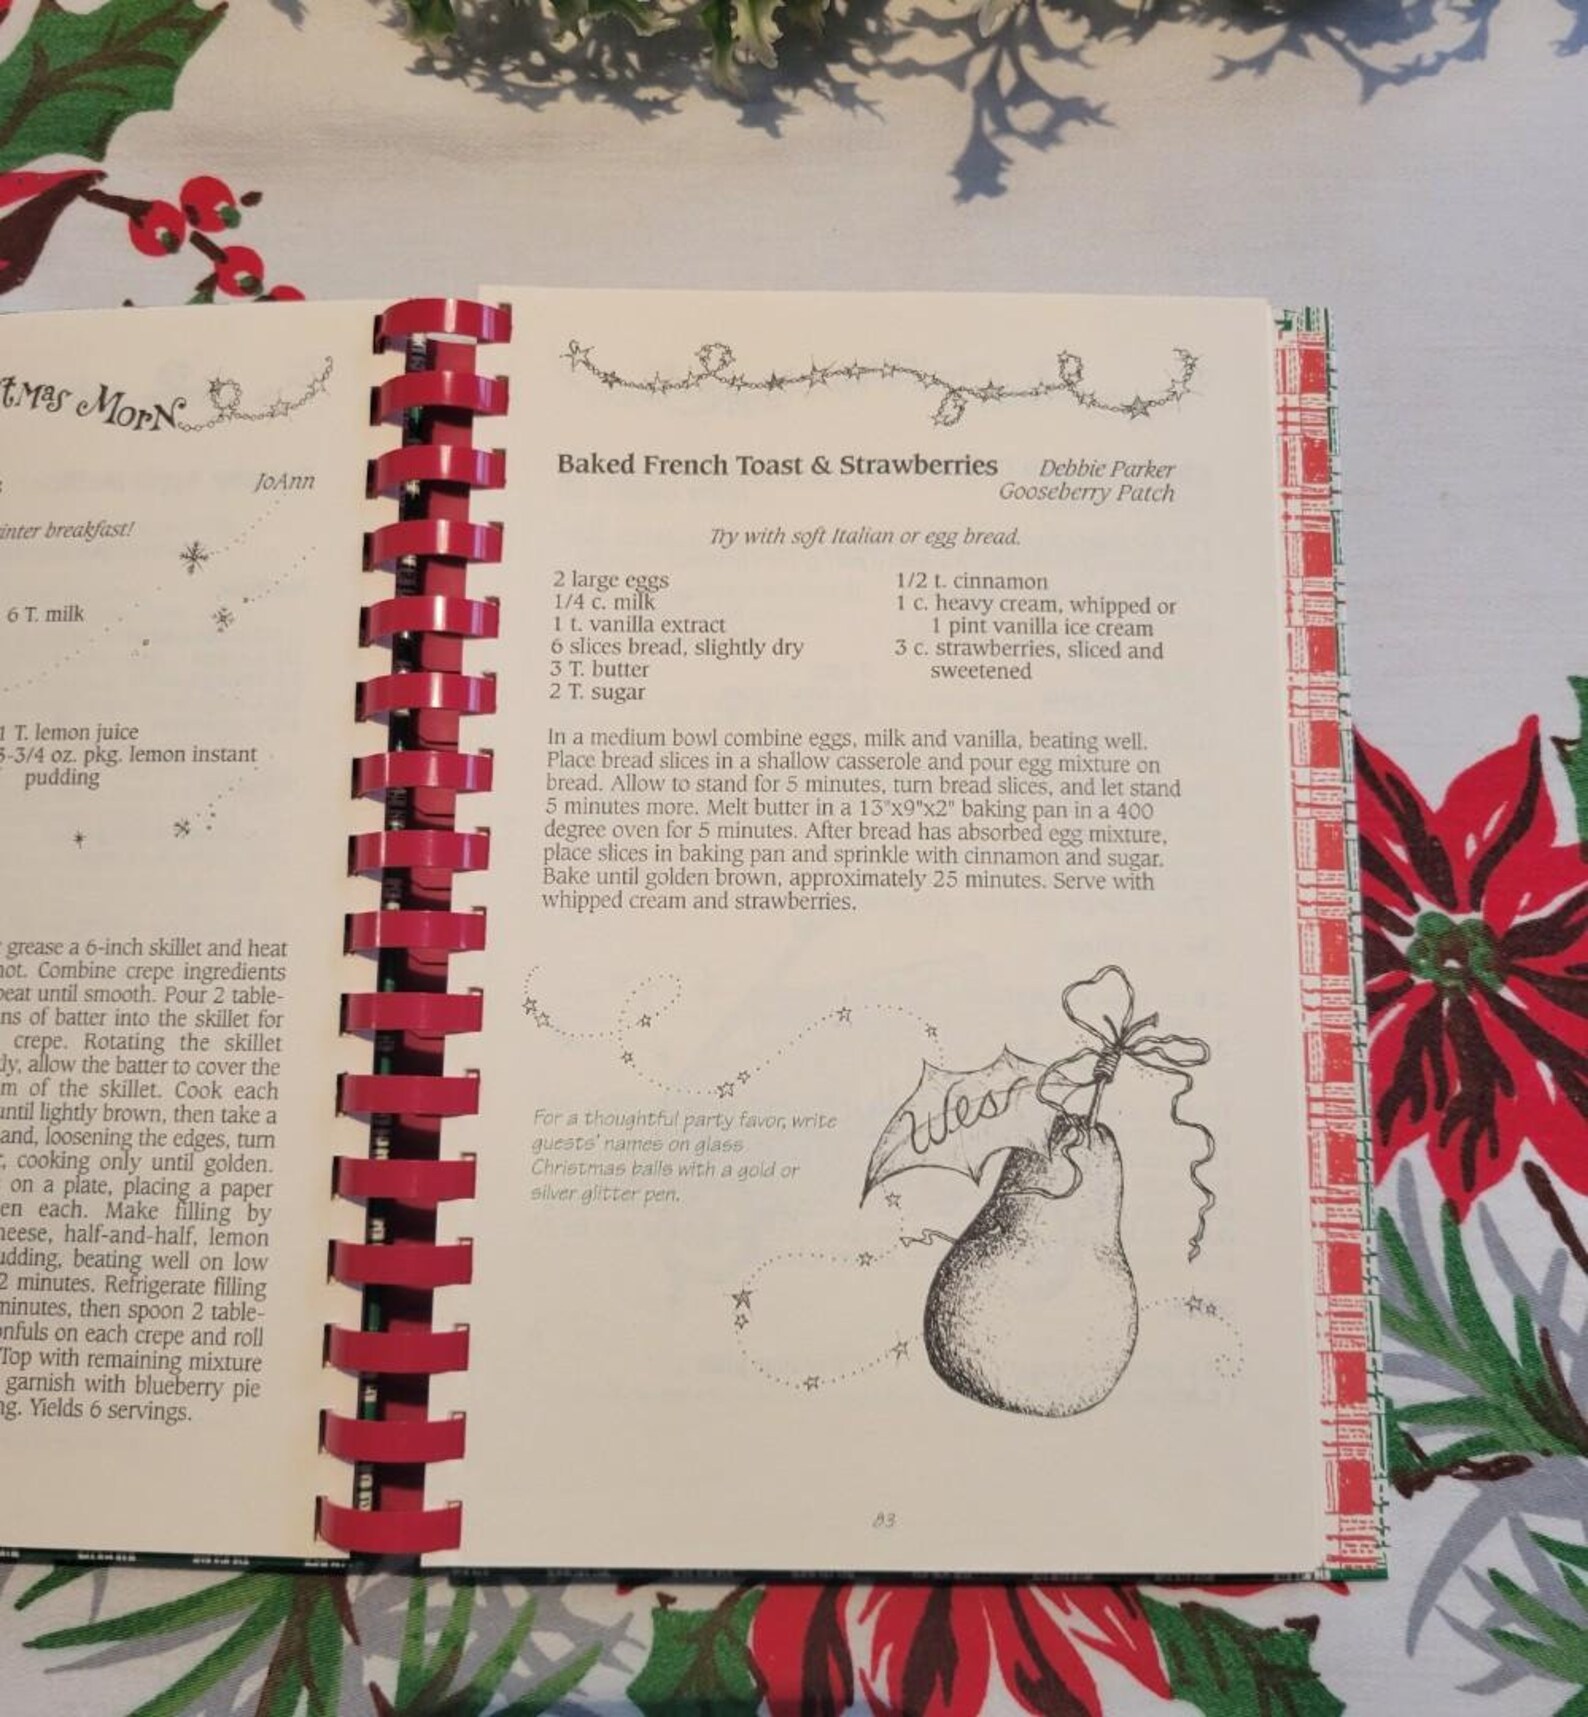 tmas Morn
JoAnn
inter breakfast!
6 T. milk
1 T. lemon juice
3-3/4 oz. pkg. lemon instant
pudding
grease a 6-inch skillet and heat
hot. Combine crepe ingredients
beat until smooth. Pour 2 table-
ns of batter into the skillet for
crepe. Rotating the skillet
ly, allow the batter to cover the
m of the skillet. Cook each
until lightly brown, then take a
and, loosening the edges, turn
, cooking only until golden.
on a plate, placing a paper
en each. Make filling by
heese, half-and-half, lemon
udding, beating well on low
2 minutes. Refrigerate filling
minutes, then spoon 2 table-
onfuls on each crepe and roll
Top with remaining mixture
garnish with blueberry pie
ng. Yields 6 servings.
Baked French Toast & Strawberries Debbie Parker
Gooseberry Patch
Try with soft Italian or egg bread.
2 large eggs
1/4 c. milk
1 t. vanilla extract
6 slices bread, slightly dry
3 T. butter
2 T. sugar
1/2 t. cinnamon
1 c. heavy cream, whipped or
1 pint vanilla ice cream
3 c. strawberries, sliced and
sweetened
In a medium bowl combine eggs, milk and vanilla, beating well.
Place bread slices in a shallow casserole and pour egg mixture on
bread. Allow to stand for 5 minutes, turn bread slices, and let stand
5 minutes more. Melt butter in a 13"x9"x2" baking pan in a 400
degree oven for 5 minutes. After bread has absorbed egg mixture,
place slices in baking pan and sprinkle with cinnamon and sugar.
Bake until golden brown, approximately 25 minutes. Serve with
whipped cream and strawberries.
For a thoughtful party favor, write
guests' names on glass
Christmas balls with a gold or
silver glitter pen.
Wes
83